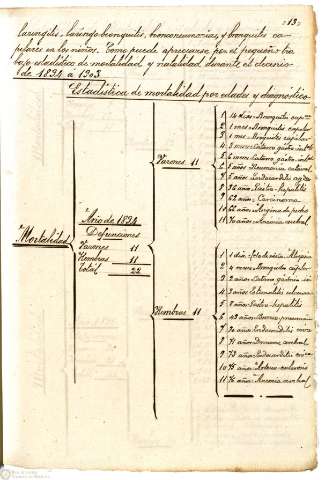 -13-
laringitis, laringo-bronquitis, bronconeumonias, y bronquitis ca-
pilares en los niños. Como puede apreciarse por el pequeño tra-
bajo estadístico de mortalidad y natalidad durante el decenio
de 1894 a 1903.
Estadística de mortalidad por edades y diagnóstico
Varones 11
1 14 dias - Bronquitis capilar
2 1 mes - Bronquitis capilar
3 1 mes - Bronquitis capilar
4 3 meses - Catarro gastro-intstl
5 6 meses - Catarro gastro-intstl
6 5 años - Neumonia catarral
7 5 años - Endocarditis aguda
8 36 años - Gastro-hepatitis
9 62 años - Carcinoma
10 66 años - Angina de pecho
11 76 años - Anemia cerebral
Mortalidad
Año de 1894
Defunciones
Varones 11
Hembras 11
Total 22
Hembras 11
1 1 dia
2 4 meses - Bronquitis capilar
3 2 años - Catarro gastro-in
4 3 años
5 7 años - Gastro-hepatitis
6 49 años - Bronco-pneumonia
7 70 años - Endocarditis
8 71 años - cerebral
9 73 años - Endocarditis
10 75 años
11 76 años - Anemia cerebral